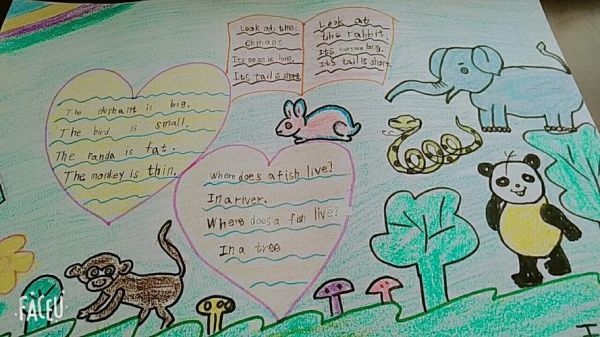 Look at the
elphant
Its nose is long.
It's tail is short
Look at
the rabbit.
Its long.
It's tail is short
The elphant is big.
The bird is small.
The Panda is fat.
The monkey is thin.
Where does a fish live?
In a river.
Where does a fish live?
In a tree
FACEU